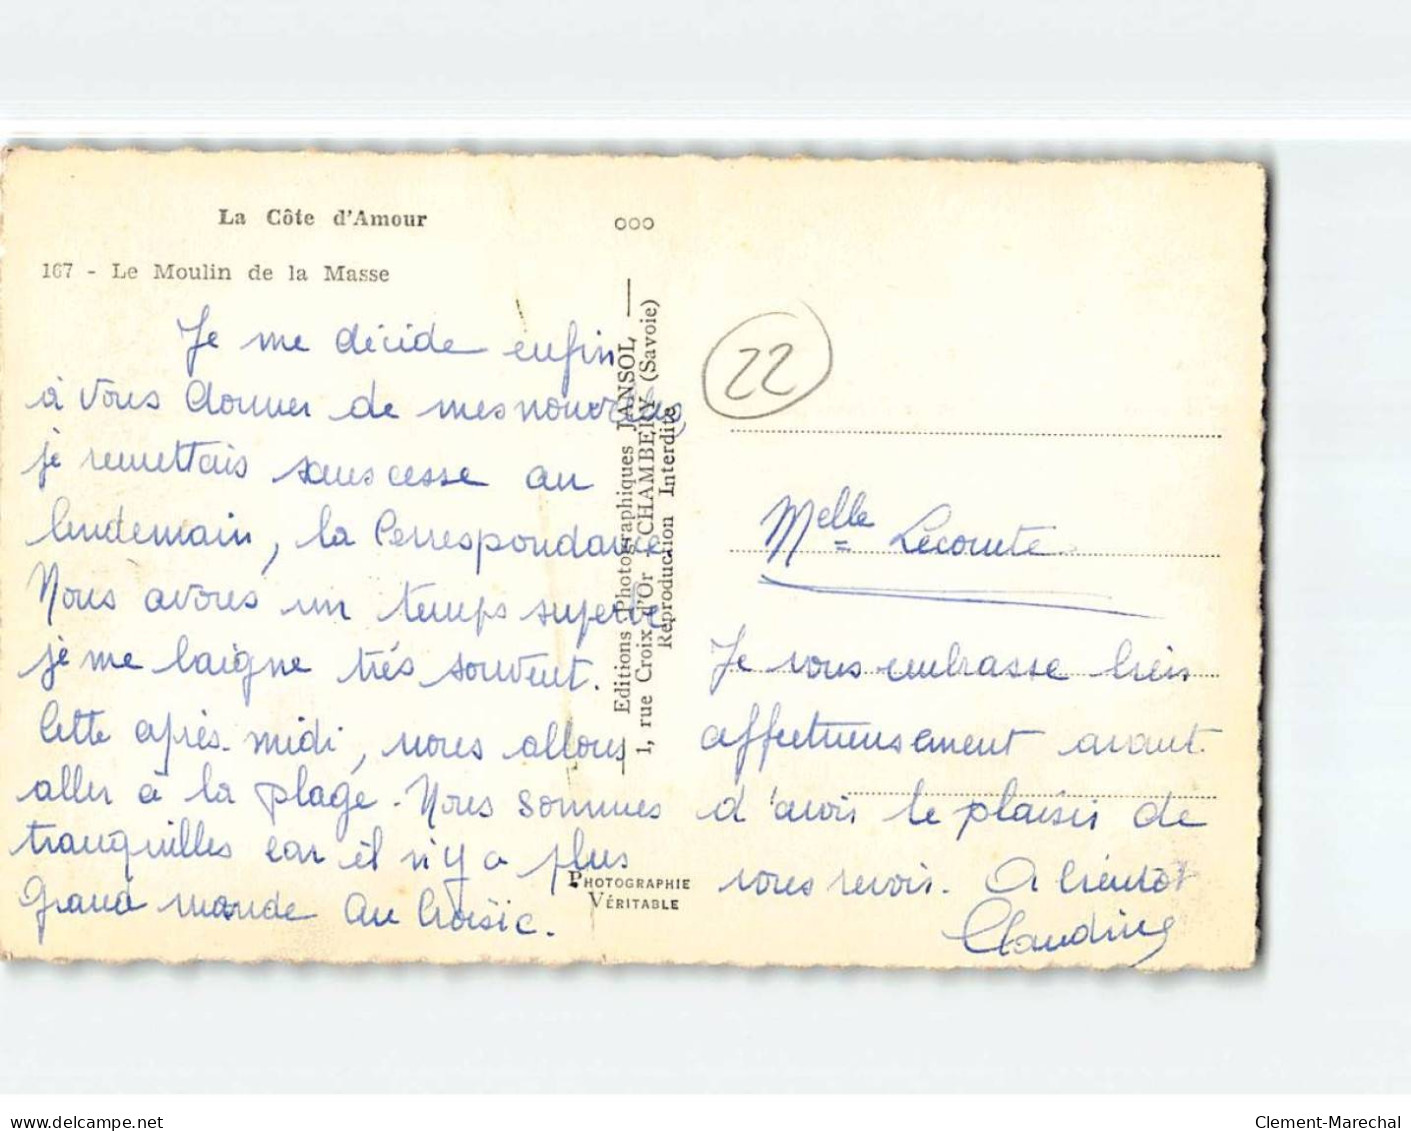 La Côte d'Amour
167 - Le Moulin de la Masse
Je me décide enfin
à vous donner de mes nouvelles,
je remettais sans cesse au
lendemain, la Correspondance.
Nous avons un temps superbe
je me baigne très souvent.
Cette après-midi, nous allons
aller à la plage. Nous sommes
tranquilles car il n'y a plus
grand monde au Croisic.
ooo
Editions Photographiques JANSOL
1, rue Croix d'Or - CHAMBERY (Savoie)
Reproduction Interdite
PHOTOGRAPHIE
VÉRITABLE
22
Melle Lecomte
Je vous embrasse bien
affectueusement avant
d'avoir le plaisir de
vous revoir. A bientôt
Claudine
delcampe.net
Clement-Marechal